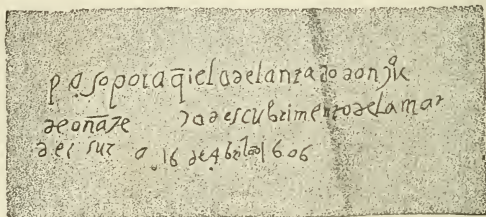 paso pora q̄i el adelantado don juᵒ
de oñate descubrimento de la mar
del sur a 16 de Abril 1606